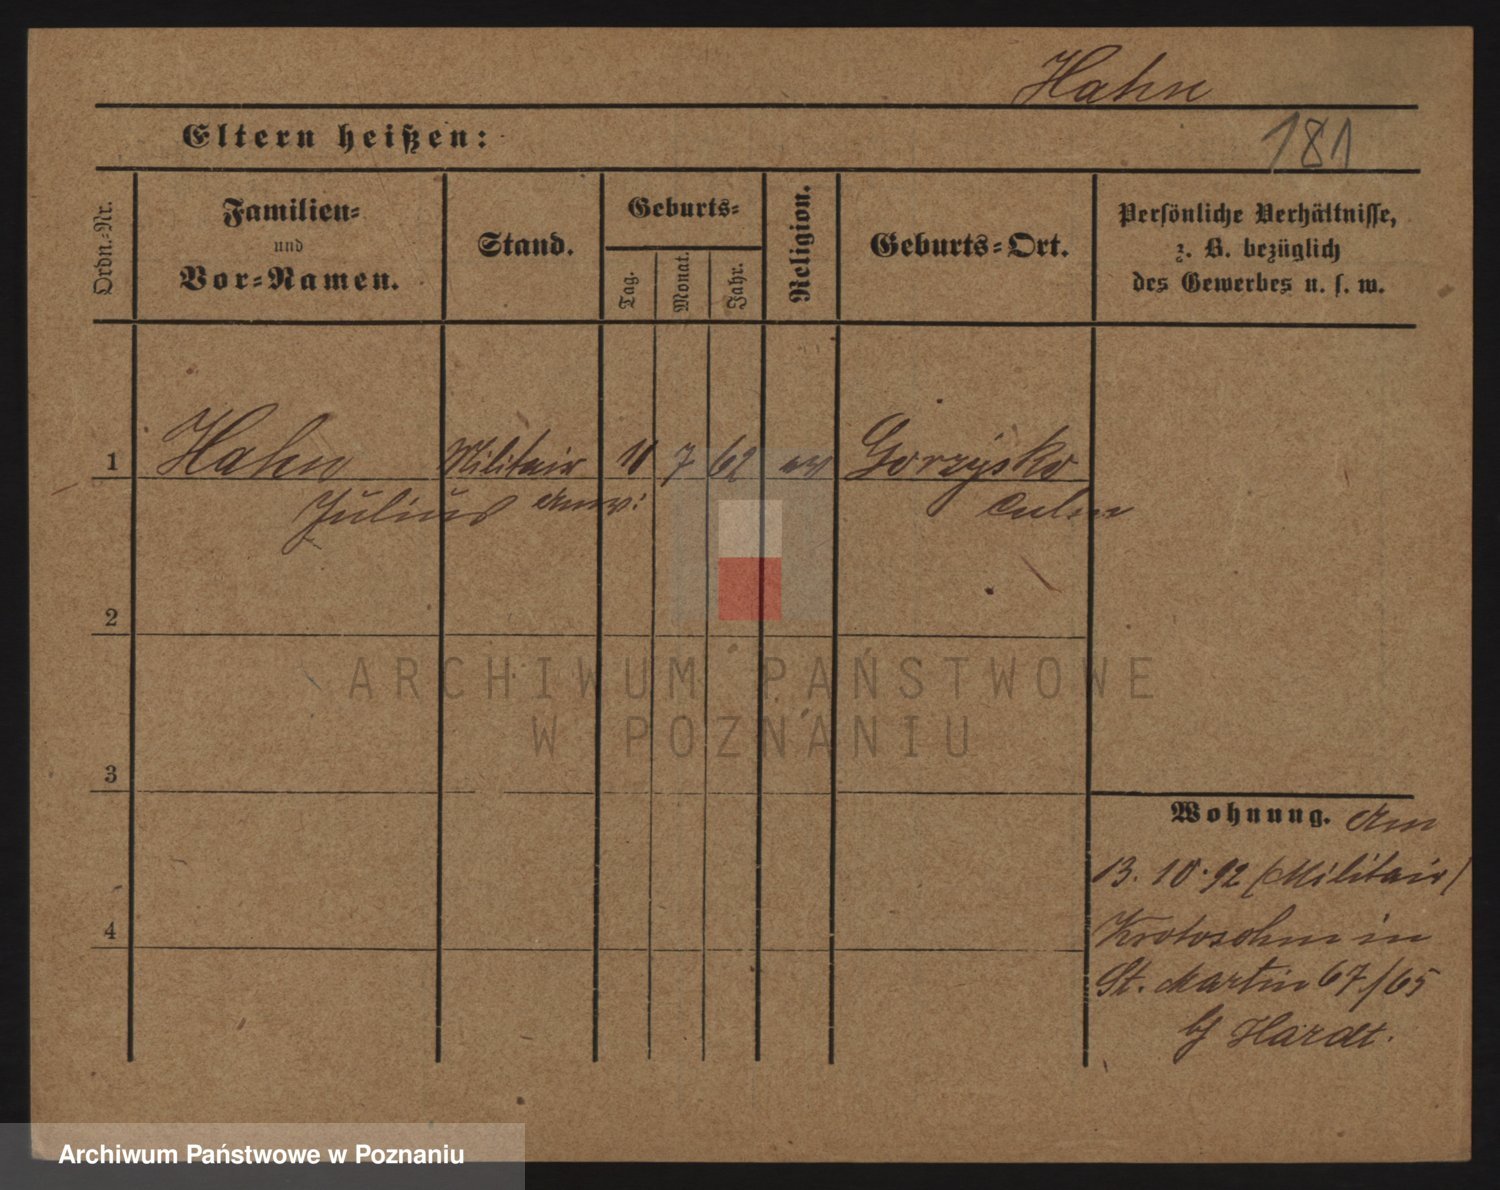 Hahn
Eltern heißen:
181
Ordn.-Nr.
Familien-
und
Vor-Namen.
Stand.
Geburts-
Tag.
Monat.
Jahr.
Religion.
Geburts-Ort.
Persönliche Verhältnisse,
z. B. bezüglich
des Gewerbes u. s. w.
1 Hahn Militair 10 7 62 ev Gorzysko
Julius Anw: Culm
2
ARCHIWUM PAŃSTWOWE
W POZNANIU
3
Wohnung. Am
13. 10. 92 (Militair)
4 Krotoschin in
St. Martin 67/65
bj Hardt.
Archiwum Państwowe w Poznaniu